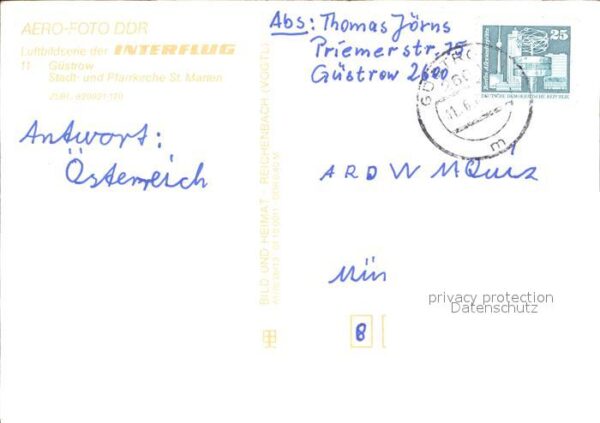 AERO-FOTO DDR
Luftbildserie der INTERFLUG
11 Güstrow
Stadt- und Pfarrkirche St. Marien
Antwort:
Österreich
BILD UND HEIMAT REICHENBACH (VOGTL)
Abs: Thomas Jörns
Priemerstr. 15
Güstrow 2600
25
DEUTSCHE DEMOKRATISCHE REPUBLIK
ARD W M Quiz
Mün
8
privacy protection
Datenschutz